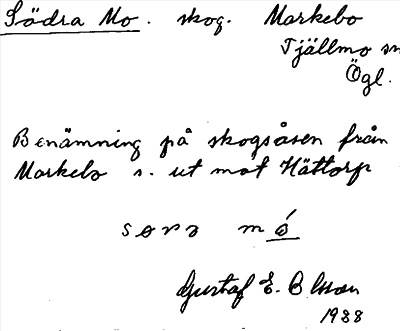 Södra Mo. skog. Markebo
Tjällmo sn
Ögl.
Benämning på skogsåsen från
Markebo s. ut mot Hättorp
sørə mó
Gustaf E. Olsson
1938